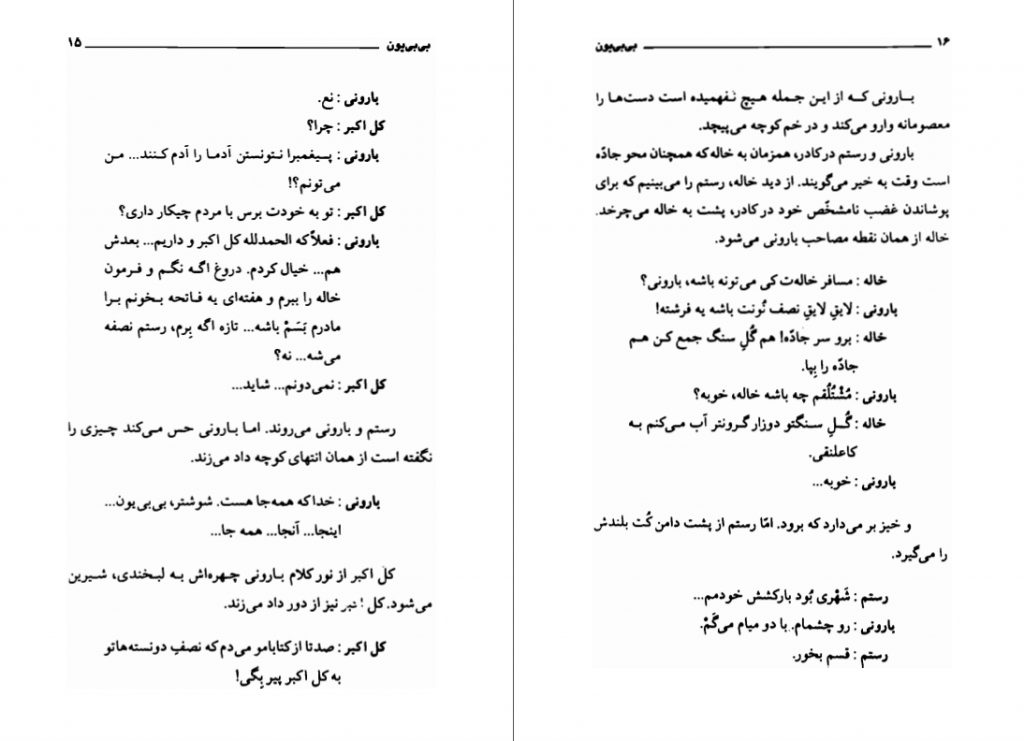 بی‌بی‌یون ۱۵
یارونی : نع.
کل اکبر : چرا؟
یارونی : پـیغمبرا نـتونستن آدمـا را آدم کـنند... مـن
می‌تونم؟!
کل اکبر : تو به خودت برس با مردم چیکار داری؟
یارونی : فعلاً که الحمدلله کل اکبر و داریم... بعدش
هم... خیال کردم. دروغ اگه نگـم و فـرمون
خاله را ببرم و هفته‌ای یه فـاتحه بـخونم بـرا
مادرم بَسَمْ باشه... تازه اگه بِرم، رستم نصفه
می‌شه... نه؟
کل اکبر : نمی‌دونم... شاید...
رستم و بارونی می‌روند. امـا بـارونی حس مـی‌کند چـیزی را
نگفته است از همان انتهای کوچه داد می‌زند.
یارونی : خدا که همه‌جا هست. شوشتر، بی‌بی‌یون...
اینجا... آنجا... همه جا...
کل اکبر از نور کلام بـارونی چـهره‌اش بـه لبـخندی، شـیرین
می‌شود. کل اکبر نیز از دور داد می‌زند.
کل اکبر : صدتا از کتابامو می‌دم که نصفِ دونسته‌هاتو
به کل اکبر پیر بِگی!
۱۶ بی‌بی‌یون
بـارونی کـه از ایـن جـمله هـیچ نـفهمیده است دست‌هـا را
معصومانه وارو می‌کند و در خم کوچه می‌پیچد.
بارونی و رستم در کادر، همزمان به خاله که همچنان محو جادّه
است وقت به خیر می‌گویند. از دید خاله، رستم را می‌بینیم که برای
پوشاندن غضب نامشخّص خود در کادر، پشت به خاله می‌چرخد.
خاله از همان نقطه مصاحب بارونی می‌شود.
خاله : مسافر خاله‌ت کی می‌تونه باشه، بارونی؟
یارونی : لایقِ لایقِ نصف نُونت باشه یه فرشته!
خاله : برو سر جادّه! هم گُلِ سنگ جمع کـن هـم
جادّه را بِپا.
یارونی : مُشْتُلُقم چه باشه خاله، خوبه؟
خاله : گُـلِ سـنگتو دوزار گـرونتر آب مـی‌کنم بـه
کاعلنقی.
یارونی : خوبه...
و خیز بر می‌دارد که برود. امّا رستم از پشت دامن کُت بلندش
را می‌گیرد.
رستم : شَهْری بُود بارکشش خودمم...
یارونی : رو چشمام. با دو میام می‌گَمْ.
رستم : قسم بخور.